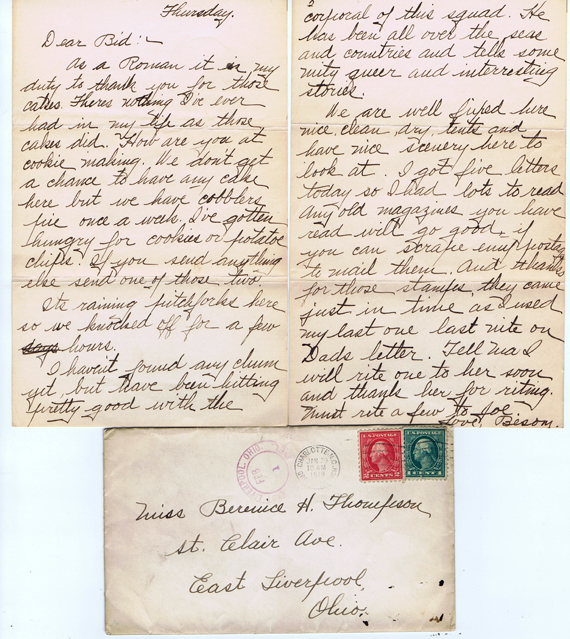 Thursday.
Dear Bid:-
As a Roman it is my
duty to thank you for those
cakes. Theres nothing I've ever
had in my life as those
cakes did. How are you at
cookie making. We don't get
a chance to have any cake
here but we have cobblers
pie once a week. I've gotten
hungry for cookies or potatoe
chips. If you send anything
else send one of those two.
Its raining pitchforks here
so we knocked off for a few
days hours.
I haven't found any chum
yet, but have been hitting
pretty good with the
corporal of this squad. He
has been all over the seas
and countries and tells some
mity queer and interresting
stories.
We are well fixed here
nice clean dry tents and
have nice scenery here to
look at. I got five letters
today so I had lots to read
Any old magazines you have
read will go good, if
you can scrape enuf postage
to mail them. And thanks
for those stamps, they came
just in time as I used
my last one last nite on
Dads letter. Tell Ma I
will rite one to her soon
and thank her for riting.
Must rite a few to Joe
Love,
CHARLOTTE, N.C.
JAN
LIVERPOOL, OHIO
FEB
1
U.S. POSTAGE
2 CENTS 2
U.S. POSTAGE
1 CENT 1
Miss Berenice H. Thompson
St. Clair Ave.
East Liverpool,
Ohio.